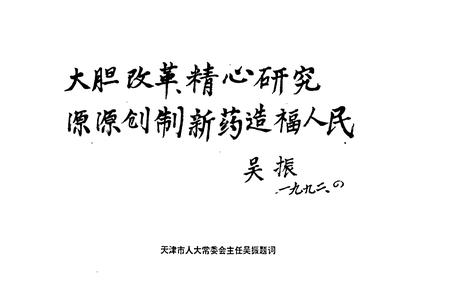 大胆改革精心研究
源源创制新药造福人民
吴振
一九九二、四
天津市人大常委会主任吴振题词